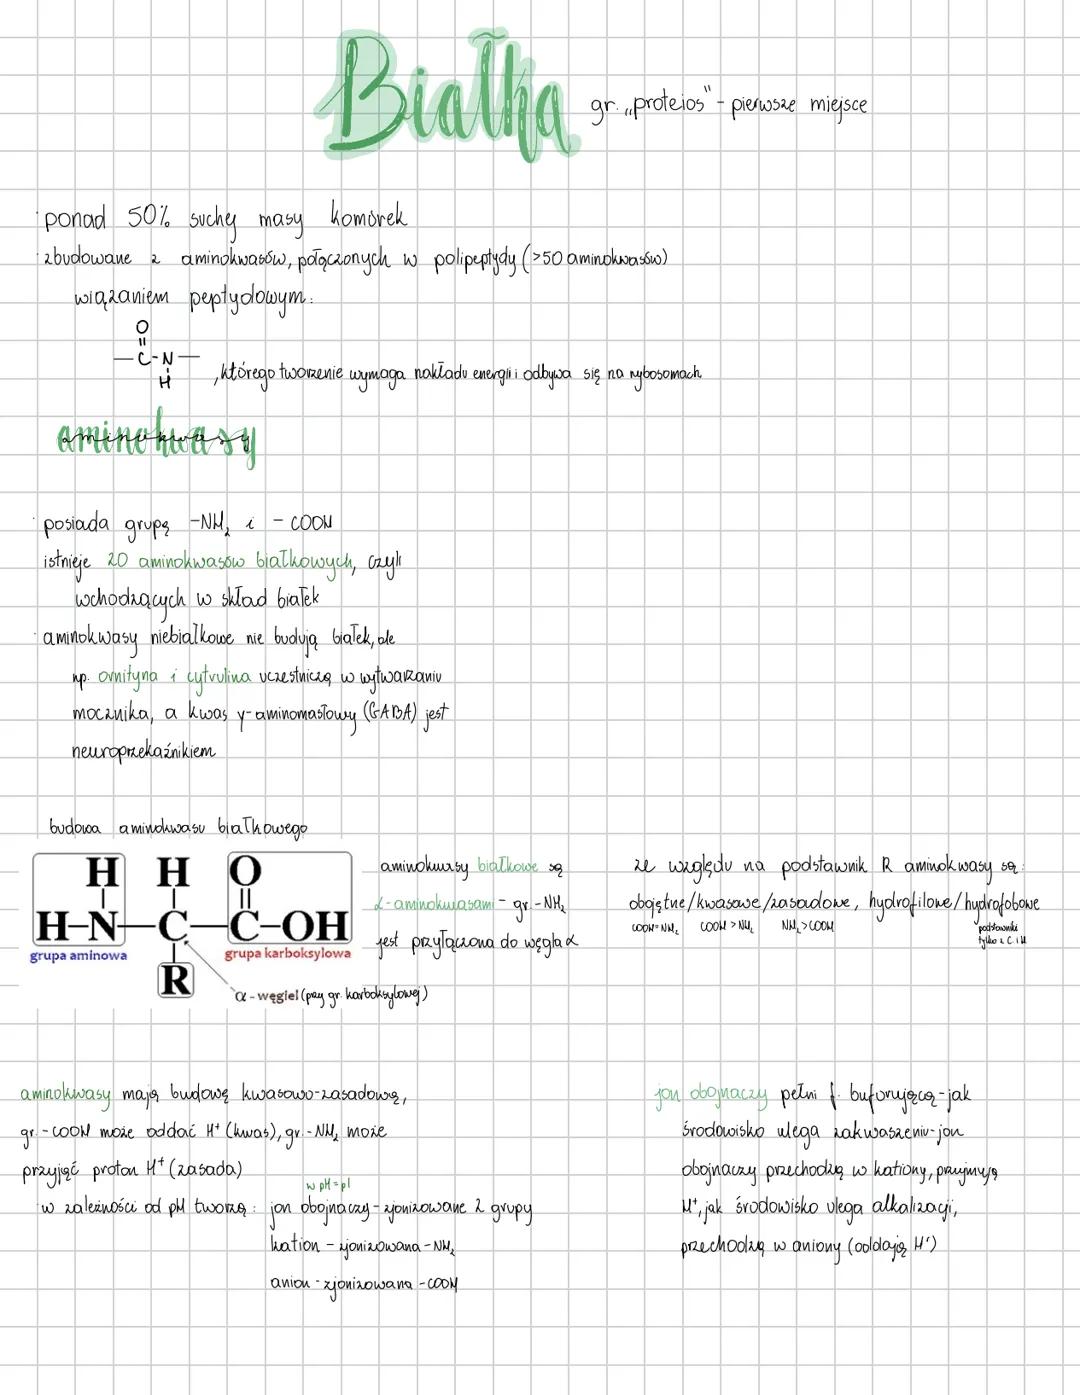 Białka gr. „proteios" - pierwsze miejsce
· ponad 50% suchej masy komórek
· zbudowane z aminokwasów, połączonych w polipeptydy (>50 aminokwasów)
wiązaniem peptydowym:
O
=
—C-N—
H
, którego tworzenie wymaga nakładu energii i odbywa się na rybosomach
aminokwasy
· posiada grupę -NH₂ i -COOH
istnieje 20 aminokwasów białkowych, czyli
wchodzących w skład białek
· aminokwasy niebiałkowe nie budują białek, ale
np. ornityna i cytrulina uczestniczą w wytwarzaniu
mocznika, a kwas γ-aminomasłowy (GABA) jest
neuroprzekaźnikiem
budowa aminokwasu białkowego
H H O
H-N-C-C-OH
grupa aminowa
grupa karboksylowa
R
α - węgiel (przy gr. karboksylowej)
aminokwasy białkowe są
α-aminokwasami - gr. -NH₂
jest przyłączona do węgla α
ze względu na podstawnik R aminokwasy są:
obojętne/kwasowe/zasadowe, hydrofilowe/hydrofobowe
COOH=NH₂ COOH>NH₂ NH₂>COOH
podstawniki
tylko z C i H
aminokwasy mają budowę kwasowo-zasadową,
gr. -COOH może oddać H⁺ (kwas), gr. -NH₂ może
przyjąć proton H⁺ (zasada)
w pH=pI
w zależności od pH tworzą: jon obojnaczy - zjonizowane 2 grupy
kation - zjonizowana -NH₂
anion - zjonizowana -COOH
jon obojnaczy pełni f. buforującą - jak
środowisko ulega zakwaszeniu - jon
obojnaczy przechodzą w kationy, przyjmują
H⁺, jak środowisko ulega alkalizacji,
przechodzą w aniony (oddają H⁺)